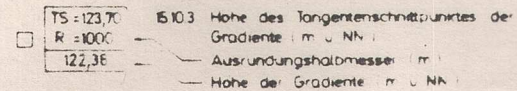 TS = 123,70 15 10.3 Höhe des Tangentenschnittpunktes der
R = 1000 Gradiente ( m ü NN )
Ausrundungshalbmesser ( m )
122,36 Höhe der Gradiente ( m ü NN )